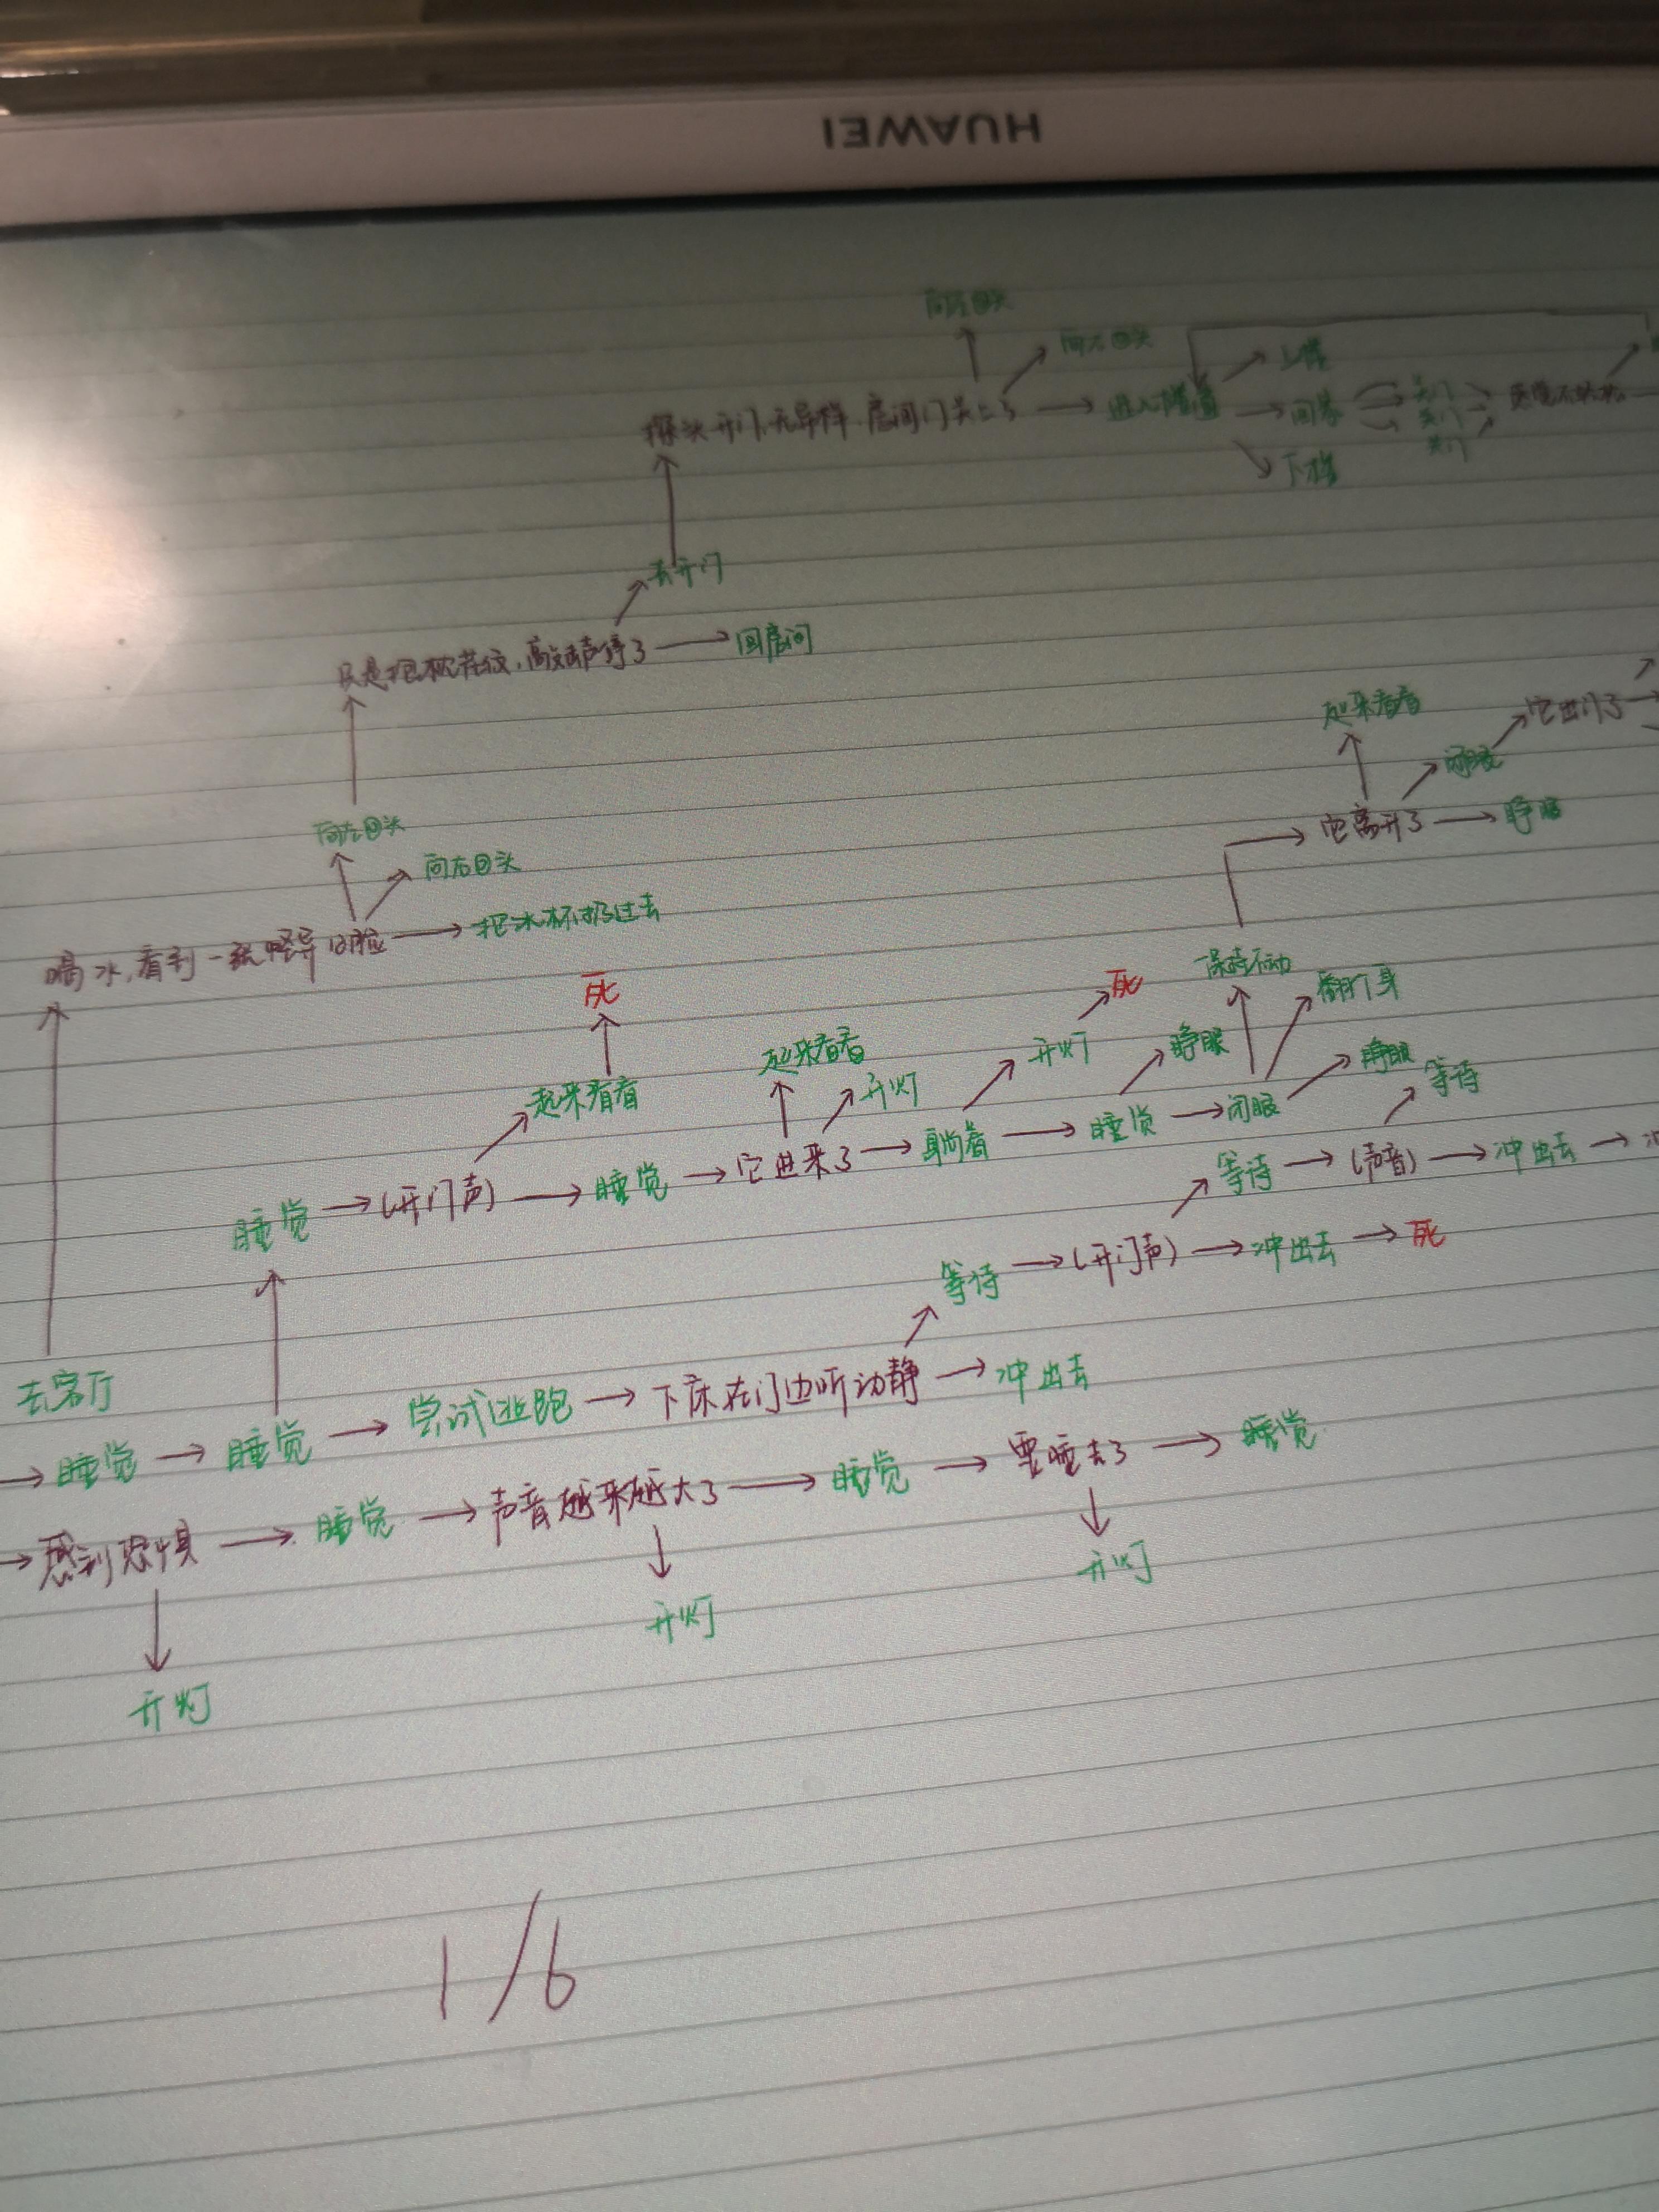 HUAWEI
向左回头
向右回头
上楼
探头开门,无异样.房间门关上了
进入楼道
回家
关门
关门
关门
下楼
去开门
只是抱枕花纹,高跟声停了
回房间
起来看看
闭眼
它出门了
它离开了
睁眼
向左回头
向右回头
喝水,看到一张怪异的脸
把水杯扔过去
死
死
保持不动
翻个身
起来看看
起来看看
开灯
开灯
睁眼
睁眼
等待
睡觉
(开门声)
睡觉
它进来了
躺着
睡觉
闭眼
等待
(声音)
冲出去
等待
(开门声)
冲出去
死
去客厅
睡觉
睡觉
尝试逃跑
下床在门边听动静
冲出去
感到恐惧
睡觉
声音越来越大了
睡觉
要睡去了
睡觉
开灯
开灯
开灯
1/6